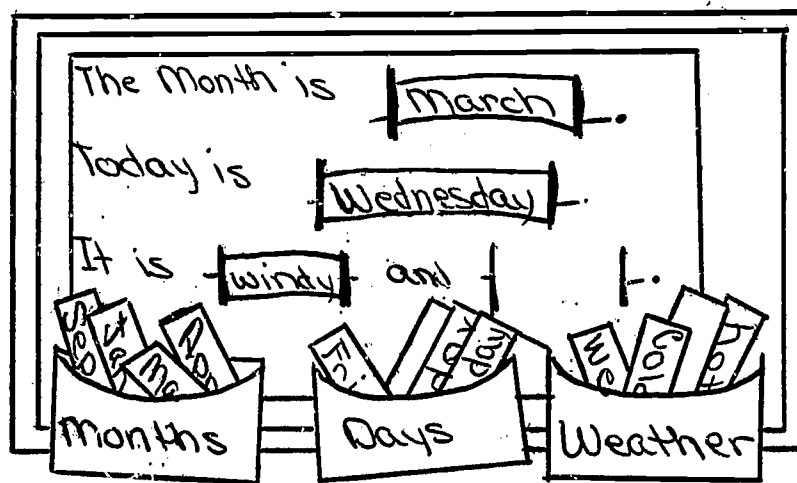 The Month is March.
Today is Wednesday.
It is windy and .
Sep Ma
Fri day day
We Col Hot
Months Days Weather